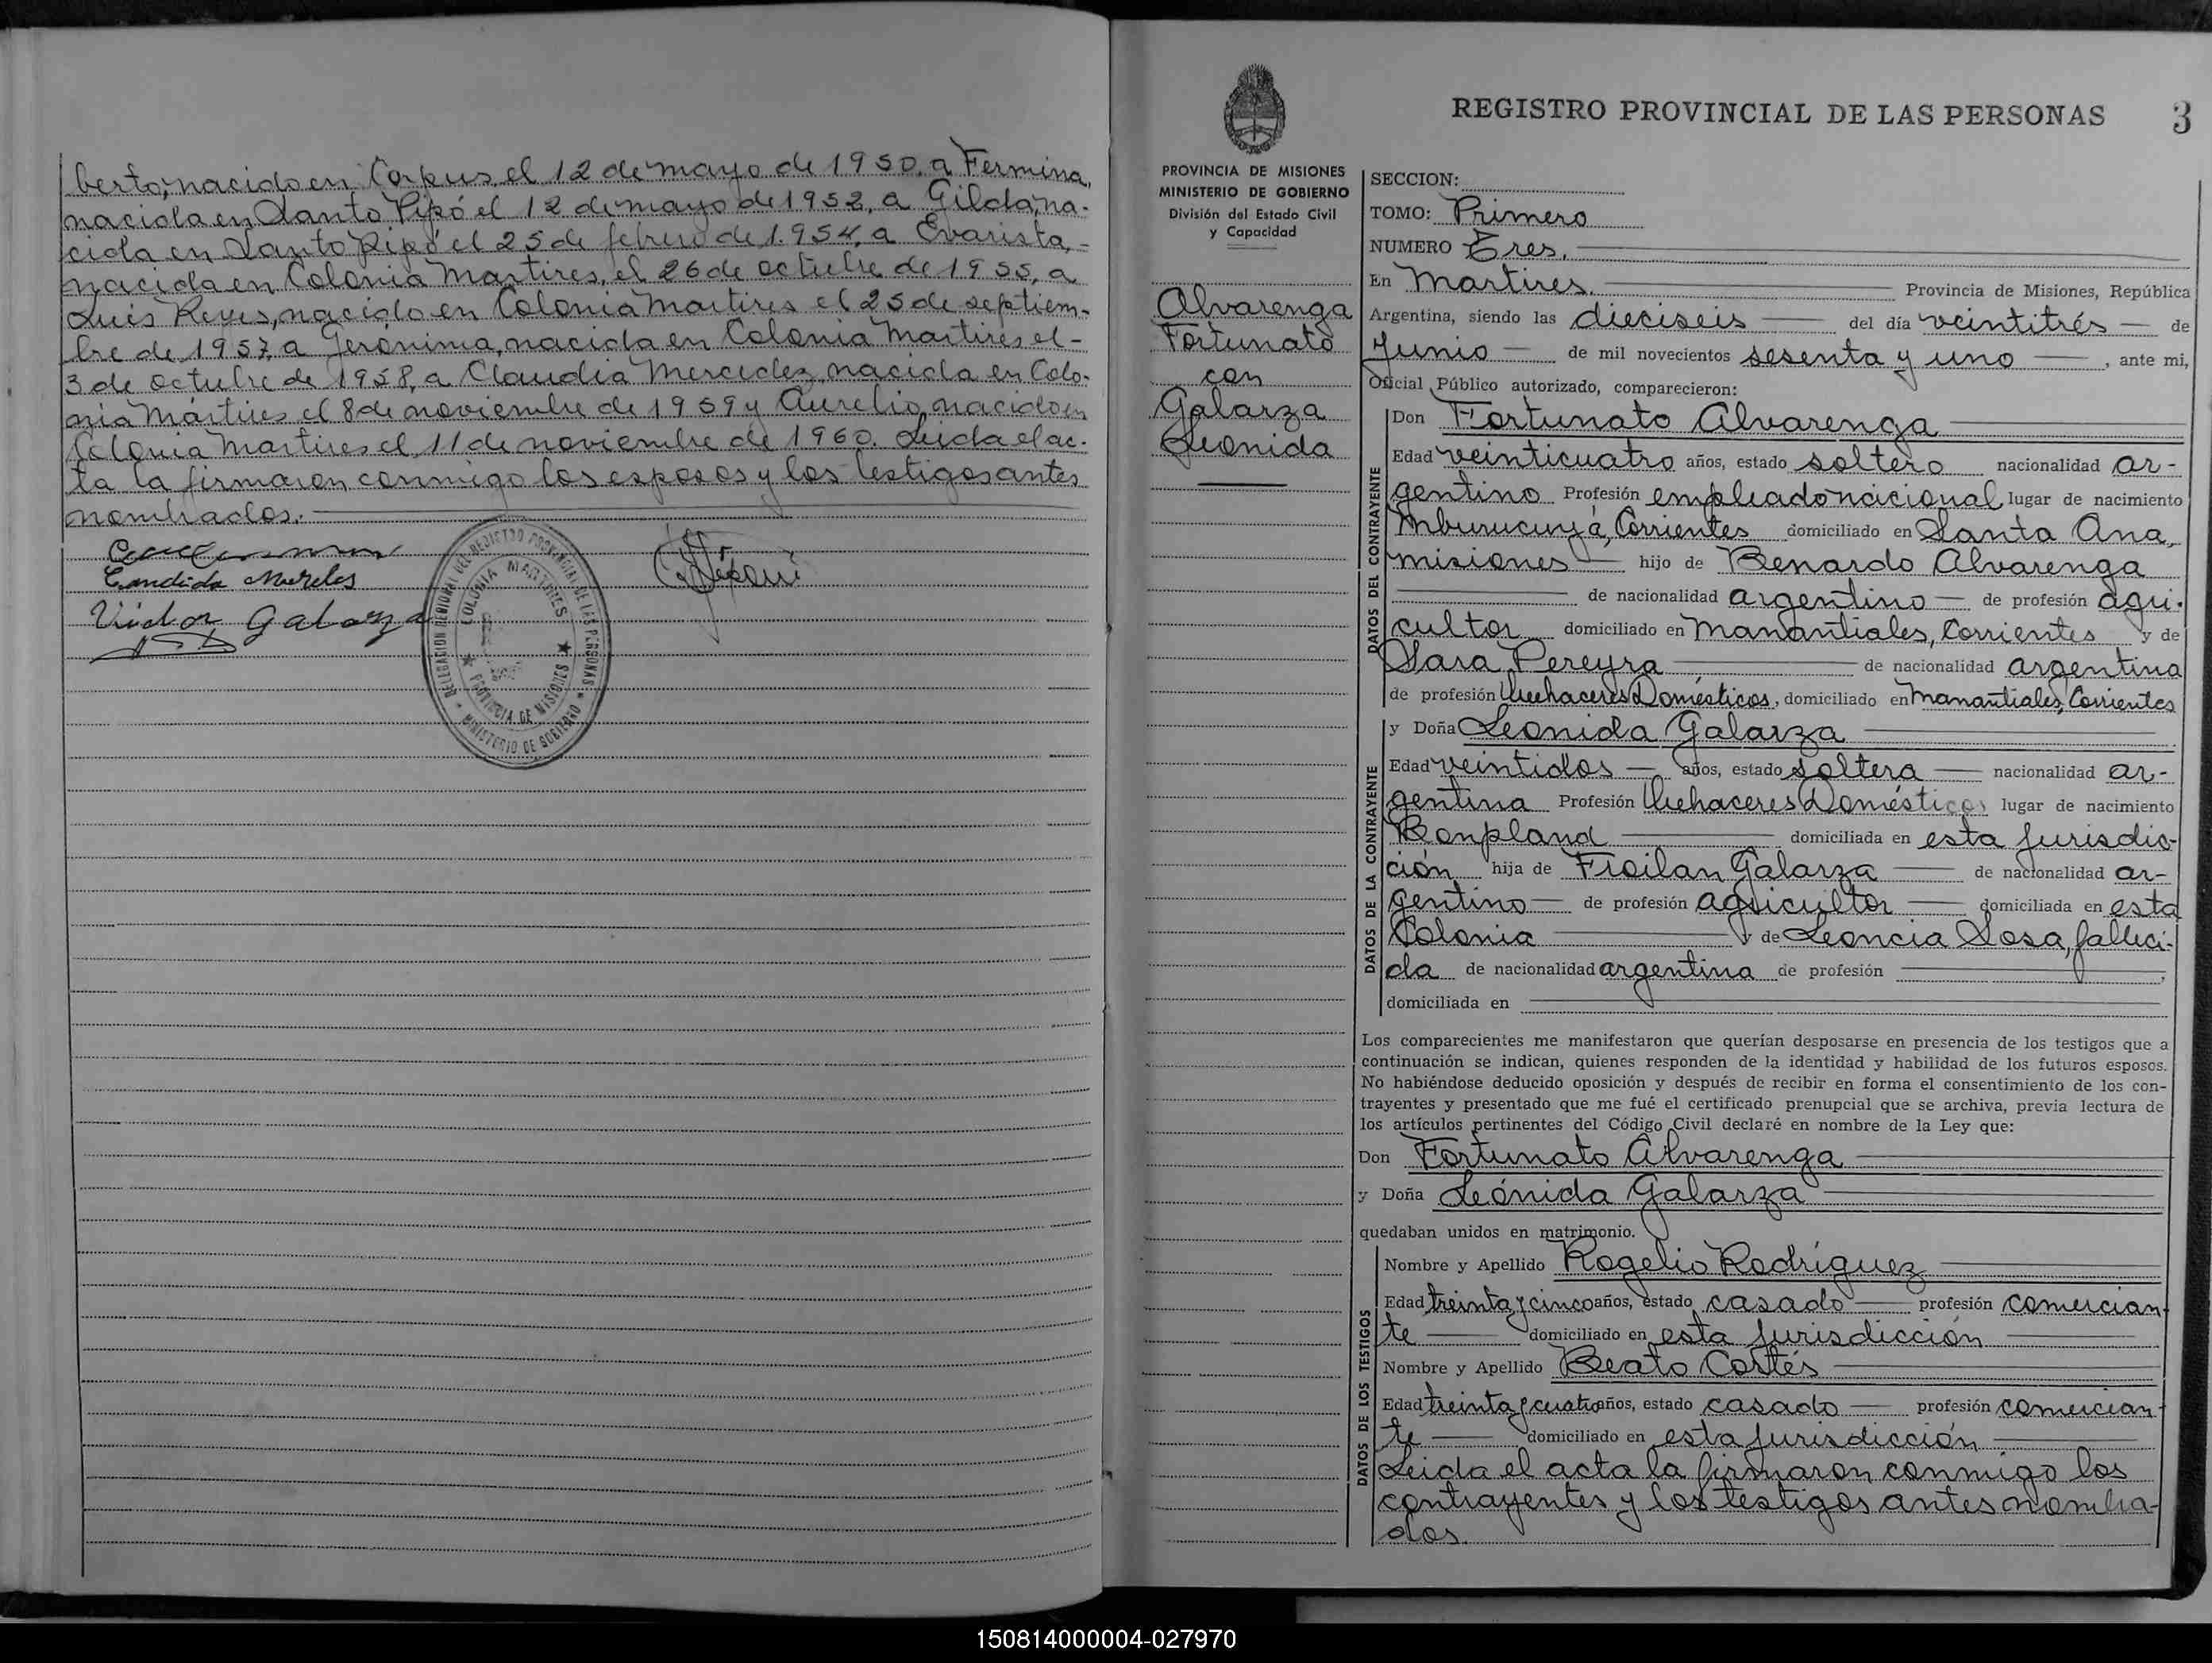 berto, nacido en Corpus, el 12 de mayo de 1950, a Fermina,
nacida en Santo Pipó el 12 de mayo de 1952, a Gilda, na-
cida en Santo Pipó el 25 de febrero de 1.954, a Evarista,
nacida en Colonia Martires, el 26 de octubre de 1955, a
Luis Reyes, nacido en Colonia Martires el 25 de septiem-
bre de 1957, a Gerónima, nacida en Colonia Martires el-
3 de octubre de 1958, a Claudia Mercedez, nacida en Colo-
nia Mártires el 8 de noviembre de 1959 y Aurelio, nacido en
Colonia Martires el 11 de noviembre de 1960. Leida el ac-
ta la firmaron conmigo los esposos y los testigos antes
nombrados.
Candida Mereles
Victor Galarza
DELEGACION REGIONAL DEL REGISTRO PROVINCIAL DE LAS PERSONAS
MINISTERIO DE GOBIERNO
COLONIA MARTIRES
PROVINCIA DE MISIONES
REGISTRO PROVINCIAL DE LAS PERSONAS 3
PROVINCIA DE MISIONES
MINISTERIO DE GOBIERNO
División del Estado Civil
y Capacidad
Alvarenga
Fortunato
con
Galarza
Leonida
SECCION:
TOMO: Primero
NUMERO Tres.
En Martires. Provincia de Misiones, República
Argentina, siendo las dieciseis del día veintitrés de
Junio de mil novecientos sesenta y uno, ante mi,
Oficial Público autorizado, comparecieron:
DATOS DEL CONTRAYENTE
Don Fortunato Alvarenga
Edad veinticuatro años, estado soltero nacionalidad ar-
gentino Profesión empleado nacional lugar de nacimiento
Mburucuyá, Corrientes domiciliado en Santa Ana,
misiones hijo de Benardo Alvarenga
de nacionalidad argentino de profesión agri-
cultor domiciliado en Manantiales, Corrientes y de
Sara Pereyra de nacionalidad argentina
de profesión Quehaceres Domésticos, domiciliado en Manantiales, Corrientes
DATOS DE LA CONTRAYENTE
y Doña Leonida Galarza
Edad veintidos años, estado soltera nacionalidad ar-
gentina Profesión Quehaceres Domésticos lugar de nacimiento
Bonpland domiciliada en esta jurisdic-
ción hija de Froilan Galarza de nacionalidad ar-
gentino de profesión agricultor domiciliada en esta
Colonia y de Leoncia Sosa, falleci-
da de nacionalidad argentina de profesión ,
domiciliada en
Los comparecientes me manifestaron que querían desposarse en presencia de los testigos que a
continuación se indican, quienes responden de la identidad y habilidad de los futuros esposos.
No habiéndose deducido oposición y después de recibir en forma el consentimiento de los con-
trayentes y presentado que me fué el certificado prenupcial que se archiva, previa lectura de
los artículos pertinentes del Código Civil declaré en nombre de la Ley que:
Don Fortunato Alvarenga
y Doña Leónida Galarza
quedaban unidos en matrimonio.
DATOS DE LOS TESTIGOS
Nombre y Apellido Rogelio Rodríguez
Edad treinta y cinco años, estado casado profesión comercian-
te domiciliado en esta jurisdicción
Nombre y Apellido Beato Cortés
Edad treinta y cuatro años, estado casado profesión comercian-
te domiciliado en esta jurisdicción
Leida el acta la firmaron conmigo los
contrayentes y los testigos antes nombra-
dos.
150814000004-027970